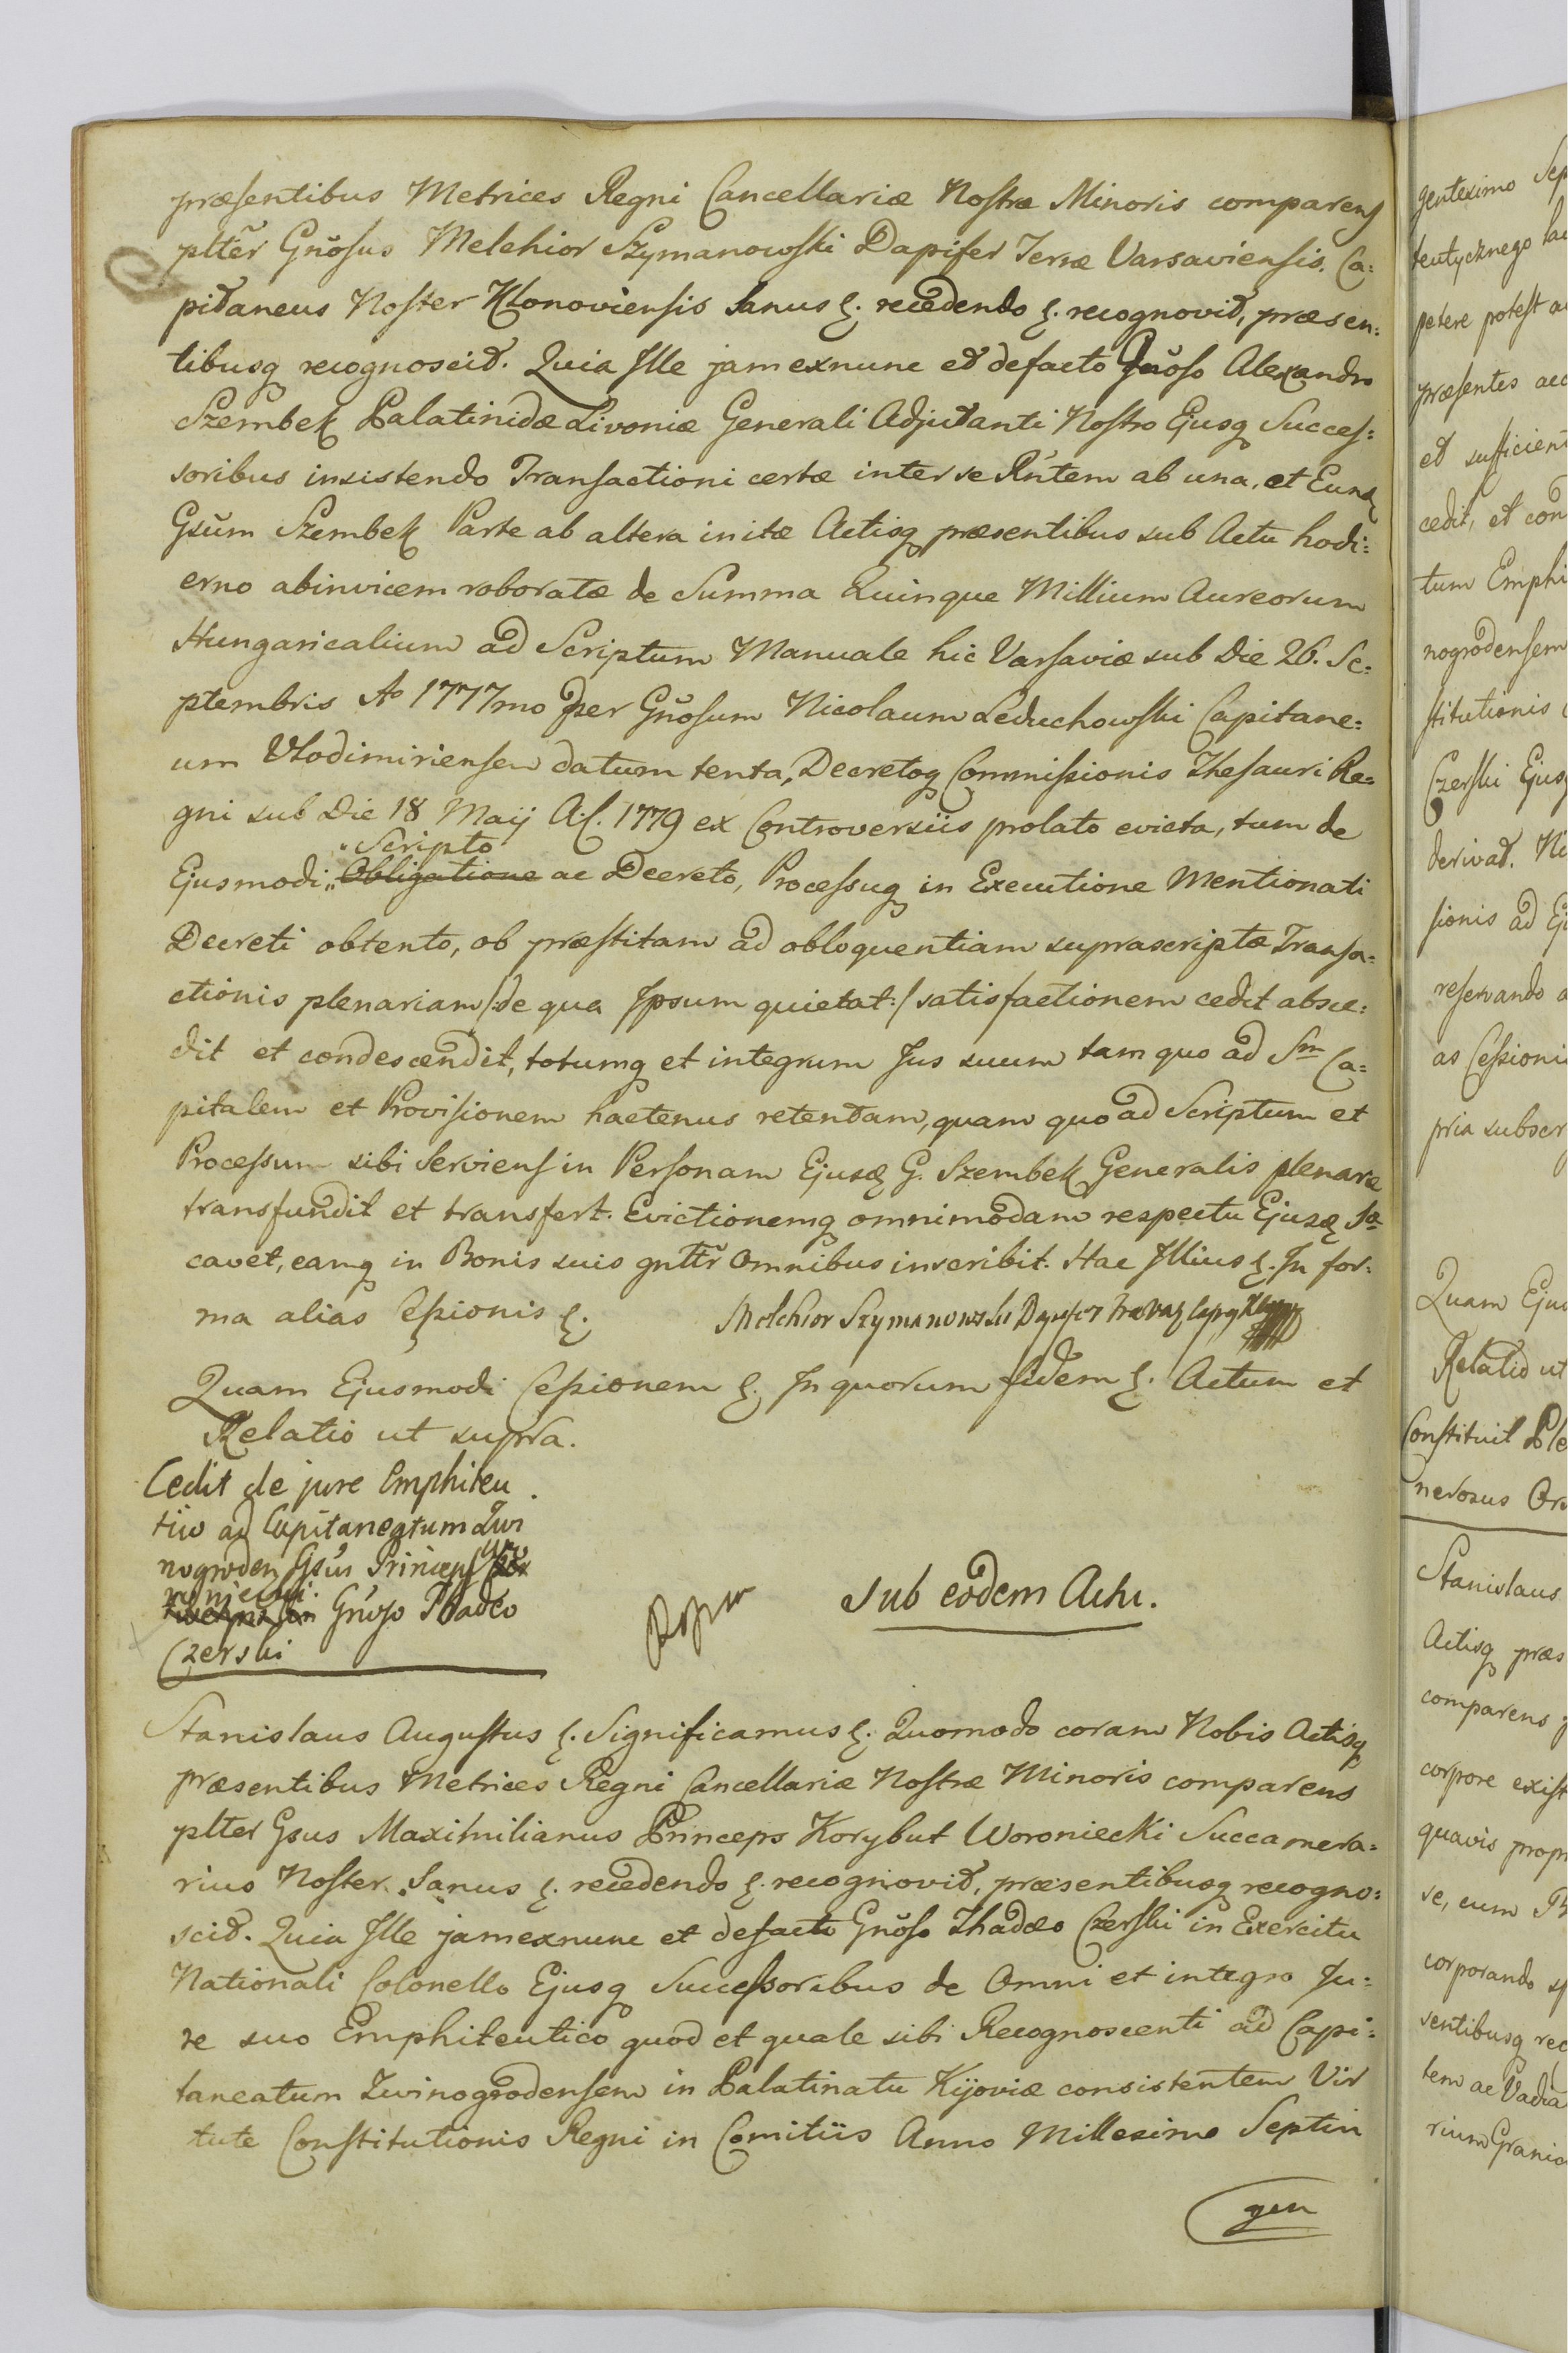 præsentibus Metrices Regni Cancellariæ Nostræ Minoris comparens
plter Gnosus Melchior Szymanowski Dapifer Terræ Varsaviensis. Ca:
pitaneus Noster Klonoviensis Sanus &. recedendo &. recognovit, præsen:
tibusq recognoscit. Quia Ille jam exnunc et defacto Gnoso Alexandro
Szembek Palatinidæ Livoniæ Generali Adjutanti Nostro Ejusq Succes:
soribus insistendo Transactioni certæ inter se Rntem ab una, et Eund
Gsum Szembek Parte ab altera initæ Actisq præsentibus sub Actu hodi:
erno abinvicem roboratæ de Summa Quinque Millium Aureorum
Hungaricalium ad Scriptum Manuale hic Varsaviæ sub Die 26. Se:
ptembris Ao 1777mo per Gnosum Nicolaum Leduchowski Capitane:
um Vlodimiriensem datum tenta, Decretoq Commissionis Thesauri Re=
gni sub Die 18 Maij A.C. 1779 ex Controversiis prolato evicta, tum de
Scripto
Ejusmodi Obligatione ac Decreto, Processuq in Executione Mentionati
Decreti obtento, ob præstitam ad obloquentiam suprascriptæ Transa:
ctionis plenariam /:de qua Ipsum quietat:/ satisfactionem cedit absce:
dit et condescendit, totumq et integrum Jus suum tam quo ad Sm Ca=
pitalem et Provisionem hactenus retentam, quam quo ad Scriptum et
Processum sibi Serviens in Personam Ejusd G. Szembek Generalis plenarie
transfundit et transfert. Evictionemq omnimodam respectu Ejusd Sæ
cavet, eamq in Bonis suis gnttr Omnibus inscribit. Hac Illius &. In for:
ma alias Cessionis &. Melchior Szymanowski Dapifer
Quam Ejusmodi Cessionem &. In quorum fidem &. Actum et
Relatio ut supra.
Cedit de jure Emphiteu
tico ad Capitaneatum Zwi
nogroden Gsus Princeps
Gnoso Thadeo
Czerski
sub eodem Actu.
Stanislaus Augustus &. Significamus &. Quomodo coram Nobis Actisq
præsentibus Metrices Regni Cancellariæ Nostræ Minoris comparens
pltter Gsus Maximilianus Princeps Korybut Woroniecki Succamera:
rius Noster. Sanus &. recedendo &. recognovit, præsentibusq recogno:
scit. Quia Ille jam exnunc et defacto Gnoso Thadæo Czerski in Exercitu
Nationali Colonello Ejusq Successoribus de Omni et integro Ju:
re suo Emphiteutico quod et quale sibi Recognoscenti ad Capi:
taneatum Zwinogrodensem in Palatinatu Kijoviæ consistentem Vir
tute Constitutionis Regni in Comitiis Anno Millesimo Septin
gen
gentesimo Sep
tentycznego
petere potest
præsentes
et sufficient
cedit, et con
tum Emphi
nogrodensem
stitutionis
Czerski Ejusq
derivat. Ni
sionis ad Ej
reservando a
as Cessionis
pria subscr
Quam Ejus
Relatio ut
Constituit Ple
nerosus
Stanislaus
Actisq præs
comparens
corpore exist
quavis propr
se, cum
corporando
sentibusq rec
tem ac Vadia
rium Grani